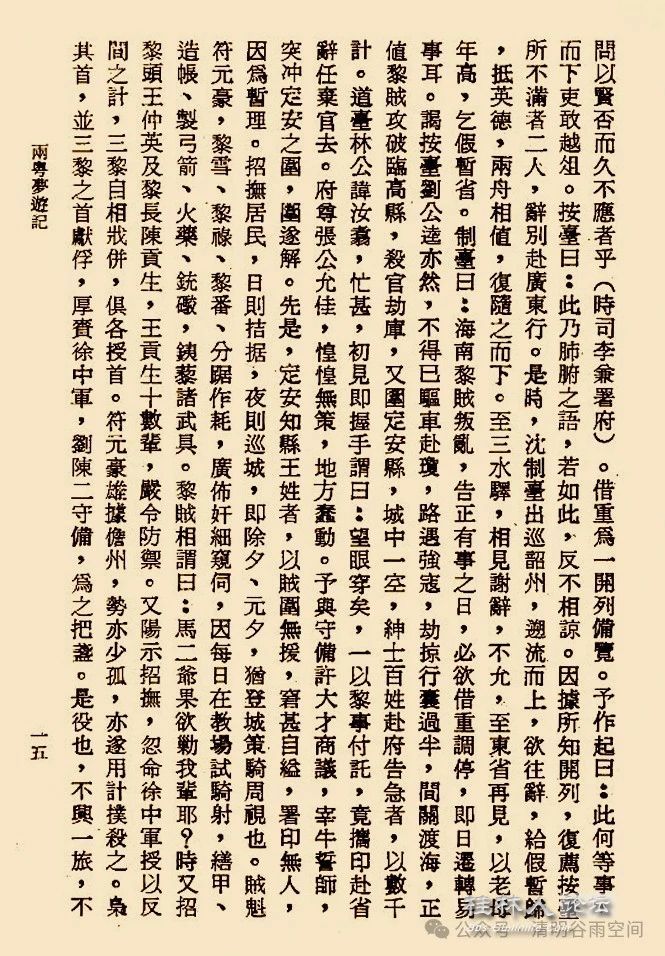 問以賢否而久不應者乎（時司李兼署府）。借重爲一開列備覽。予作起曰：此何等事，
而下吏敢越俎。按臺曰：此乃肺腑之語，若如此，反不相諒。因據所知開列，復薦按臺
所不滿者二人，辭別赴廣東行。是時，沈制臺出巡韶州，遡流而上，欲往辭，給假暫歸
，抵英德，兩舟相值，復隨之而下。至三水驛，相見謝辭，不允，至東省再見，以老母
年高，乞假暫省。制臺曰：海南黎賊叛亂，告正有事之日，必欲借重調停，即日遷轉易
事耳。謁按臺劉公逵亦然，不得已驅車赴瓊，路遇強寇，劫掠行囊過半，間關渡海，正
値黎賊攻破臨高縣，殺官劫庫，又圍定安縣，城中一空，紳士百姓赴府告急者，以數千
計。道臺林公諱汝翥，忙甚，初見即握手謂曰：望眼穿矣，一以黎事付託，竟攜印赴省
辭任棄官去。府尊張公允佳，惶惶無策，地方蠢動。予與守備許大才商議，宰牛誓師，
突冲定安之圍，圍遂解。先是，定安知縣王姓者，以賊圍無援，窘甚自縊，署印無人，
因爲暫理。招撫居民，日則拮据，夜則巡城，即除夕、元夕，猶登城策騎周視也。賊魁
符元豪，黎雪、黎祿、黎番、分踞作耗，廣佈奸細窺伺，因每日在教場試騎射，繕甲、
造帳、製弓箭、火藥、銃礮，鐵藜諸武具。黎賊相謂曰：馬二爺果欲勦我輩耶？時又招
黎頭王仲英及黎長陳貢生，王貢生十數輩，嚴令防禦。又陽示招撫，忽命徐中軍授以反
間之計，三黎自相戕併，俱各授首。符元豪雄據儋州，勢亦少孤，亦遂用計撲殺之。梟
其首，並三黎之首獻俘，厚賚徐中軍，劉陳二守備，爲之把盞。是役也，不興一旅，不
兩粤夢遊記
一五
桂林人论坛
公众号·清明谷雨空间